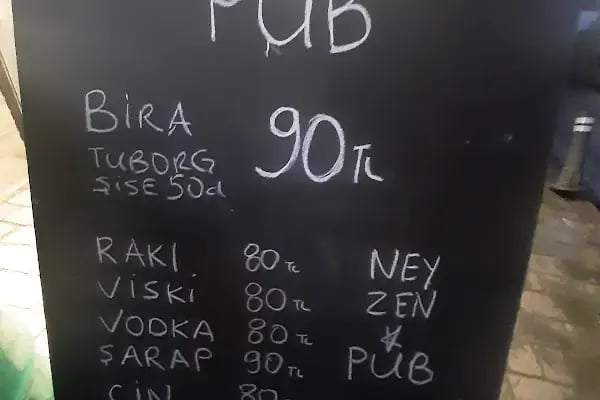 PUB
BİRA 90 TL
TUBORG
ŞİSE 50cl
RAKI 80 TL
VİSKİ 80 TL
VODKA 80 TL
ŞARAP 90 TL
CİN 80 TL
NEY
ZEN
PUB